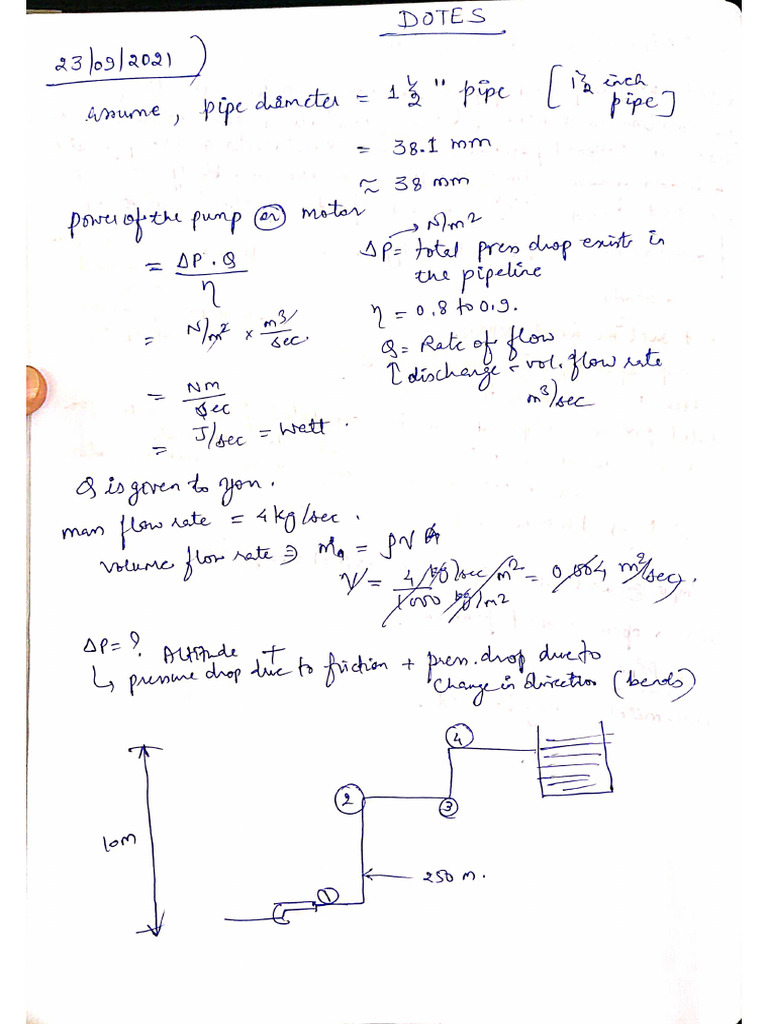 DOTES
23/09/2021)
Assume, pipe diameter = 1 1/2" pipe [1 1/2 inch pipe]
= 38.1 mm
≈ 38 mm
power of the pump (or) motor
= ΔP.Q / η
= N/m² × m³/sec
= Nm/sec
= J/sec = Watt.
→ N/m²
ΔP = total press drop exist in
the pipeline
η = 0.8 to 0.9.
Q = Rate of flow
↑ discharge = vol. flow rate
m³/sec
Q is given to you.
man flow rate = 4 kg/sec.
volume flow rate ⇒ = ρVA
V = = 0.004 m³/sec.
ΔP = ?
Altitude +
↳ pressure drop due to friction + press. drop due to
change in direction (bends)
4
2
3
10m
250 m.
1